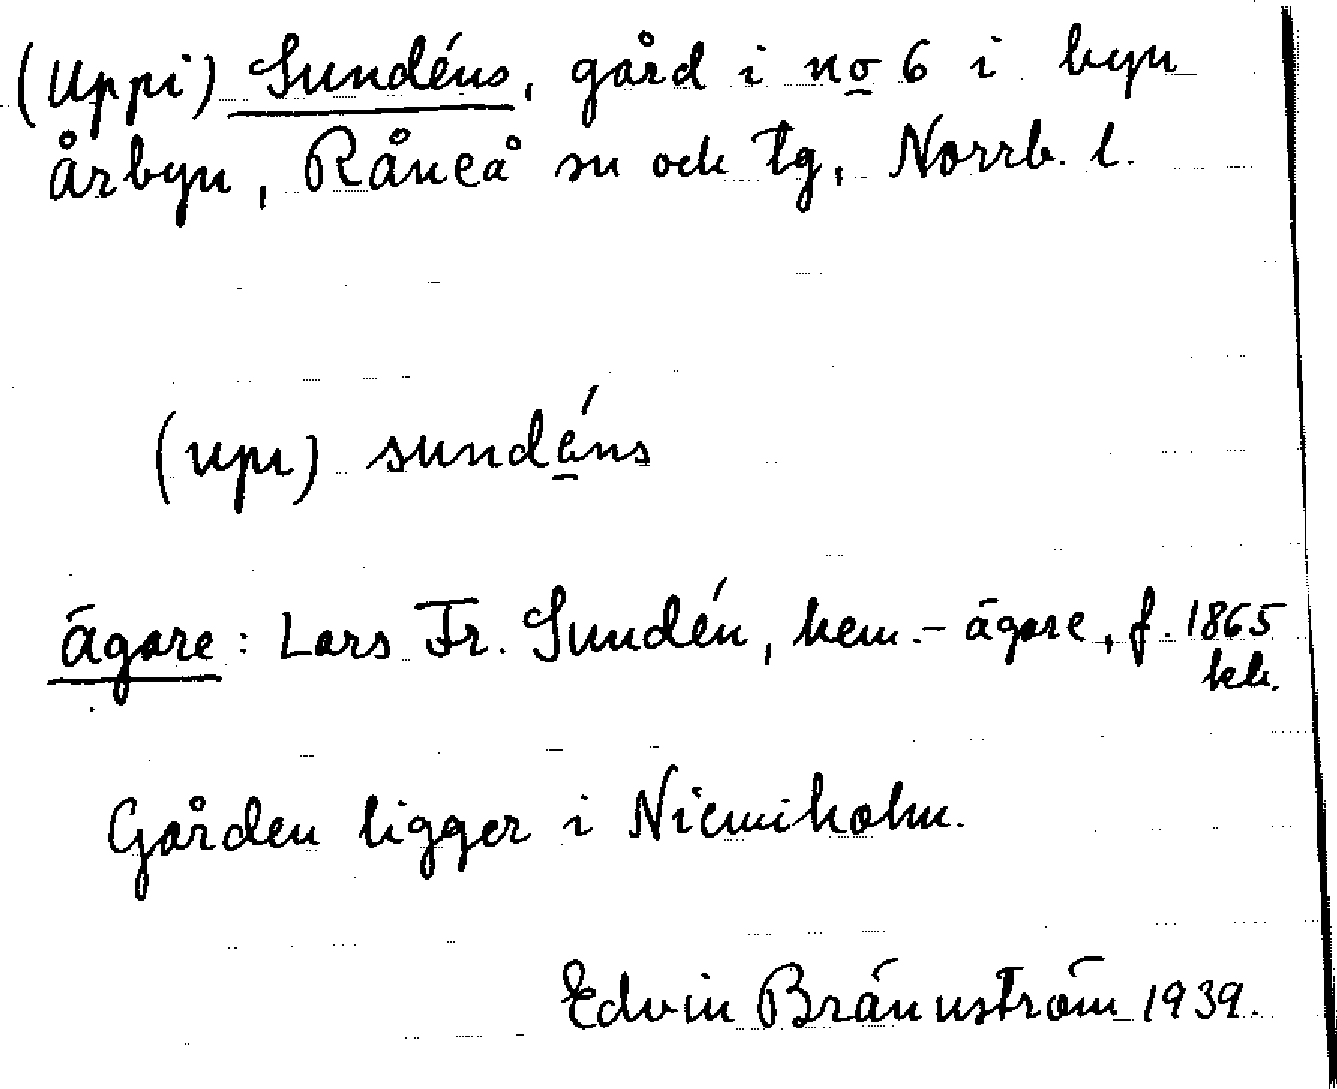 (Uppi) Sundéns, gård i no 6 i byn
Årbyn, Råneå sn och tg, Norrb. l.
(upɩ) sundéns
Ägare: Lars Fr. Sundén, hem.-ägare, f. 1865
hh.
Gården ligger i Niemiholm.
Edvin Brännström 1939.